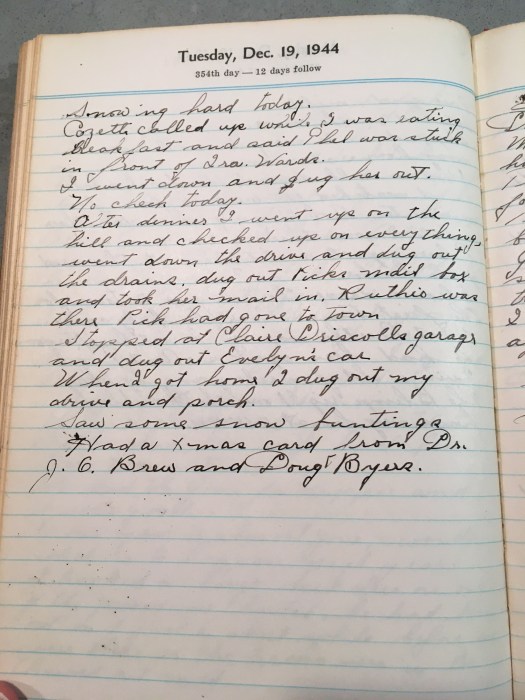 Tuesday, Dec. 19, 1944
354th day — 12 days follow
Snowing hard today.
Cozette called up while I was eating
breakfast and said Phil was stuck
in front of Ira. Wards.
I went down and dug her out.
No check today.
After dinner I went up on the
hill and checked up on everything,
went down the drive and dug out
the drains. dug out Picks mail box
and took her mail in. Ruthie was
there Pick had gone to town
Stopped at Claire Driscolls garage
and dug out Evelyn's car
When I got home I dug out my
drive and porch.
Saw some snow buntings
Had a X-mas card from Dr.
J. O. Brew and Doug Byers.